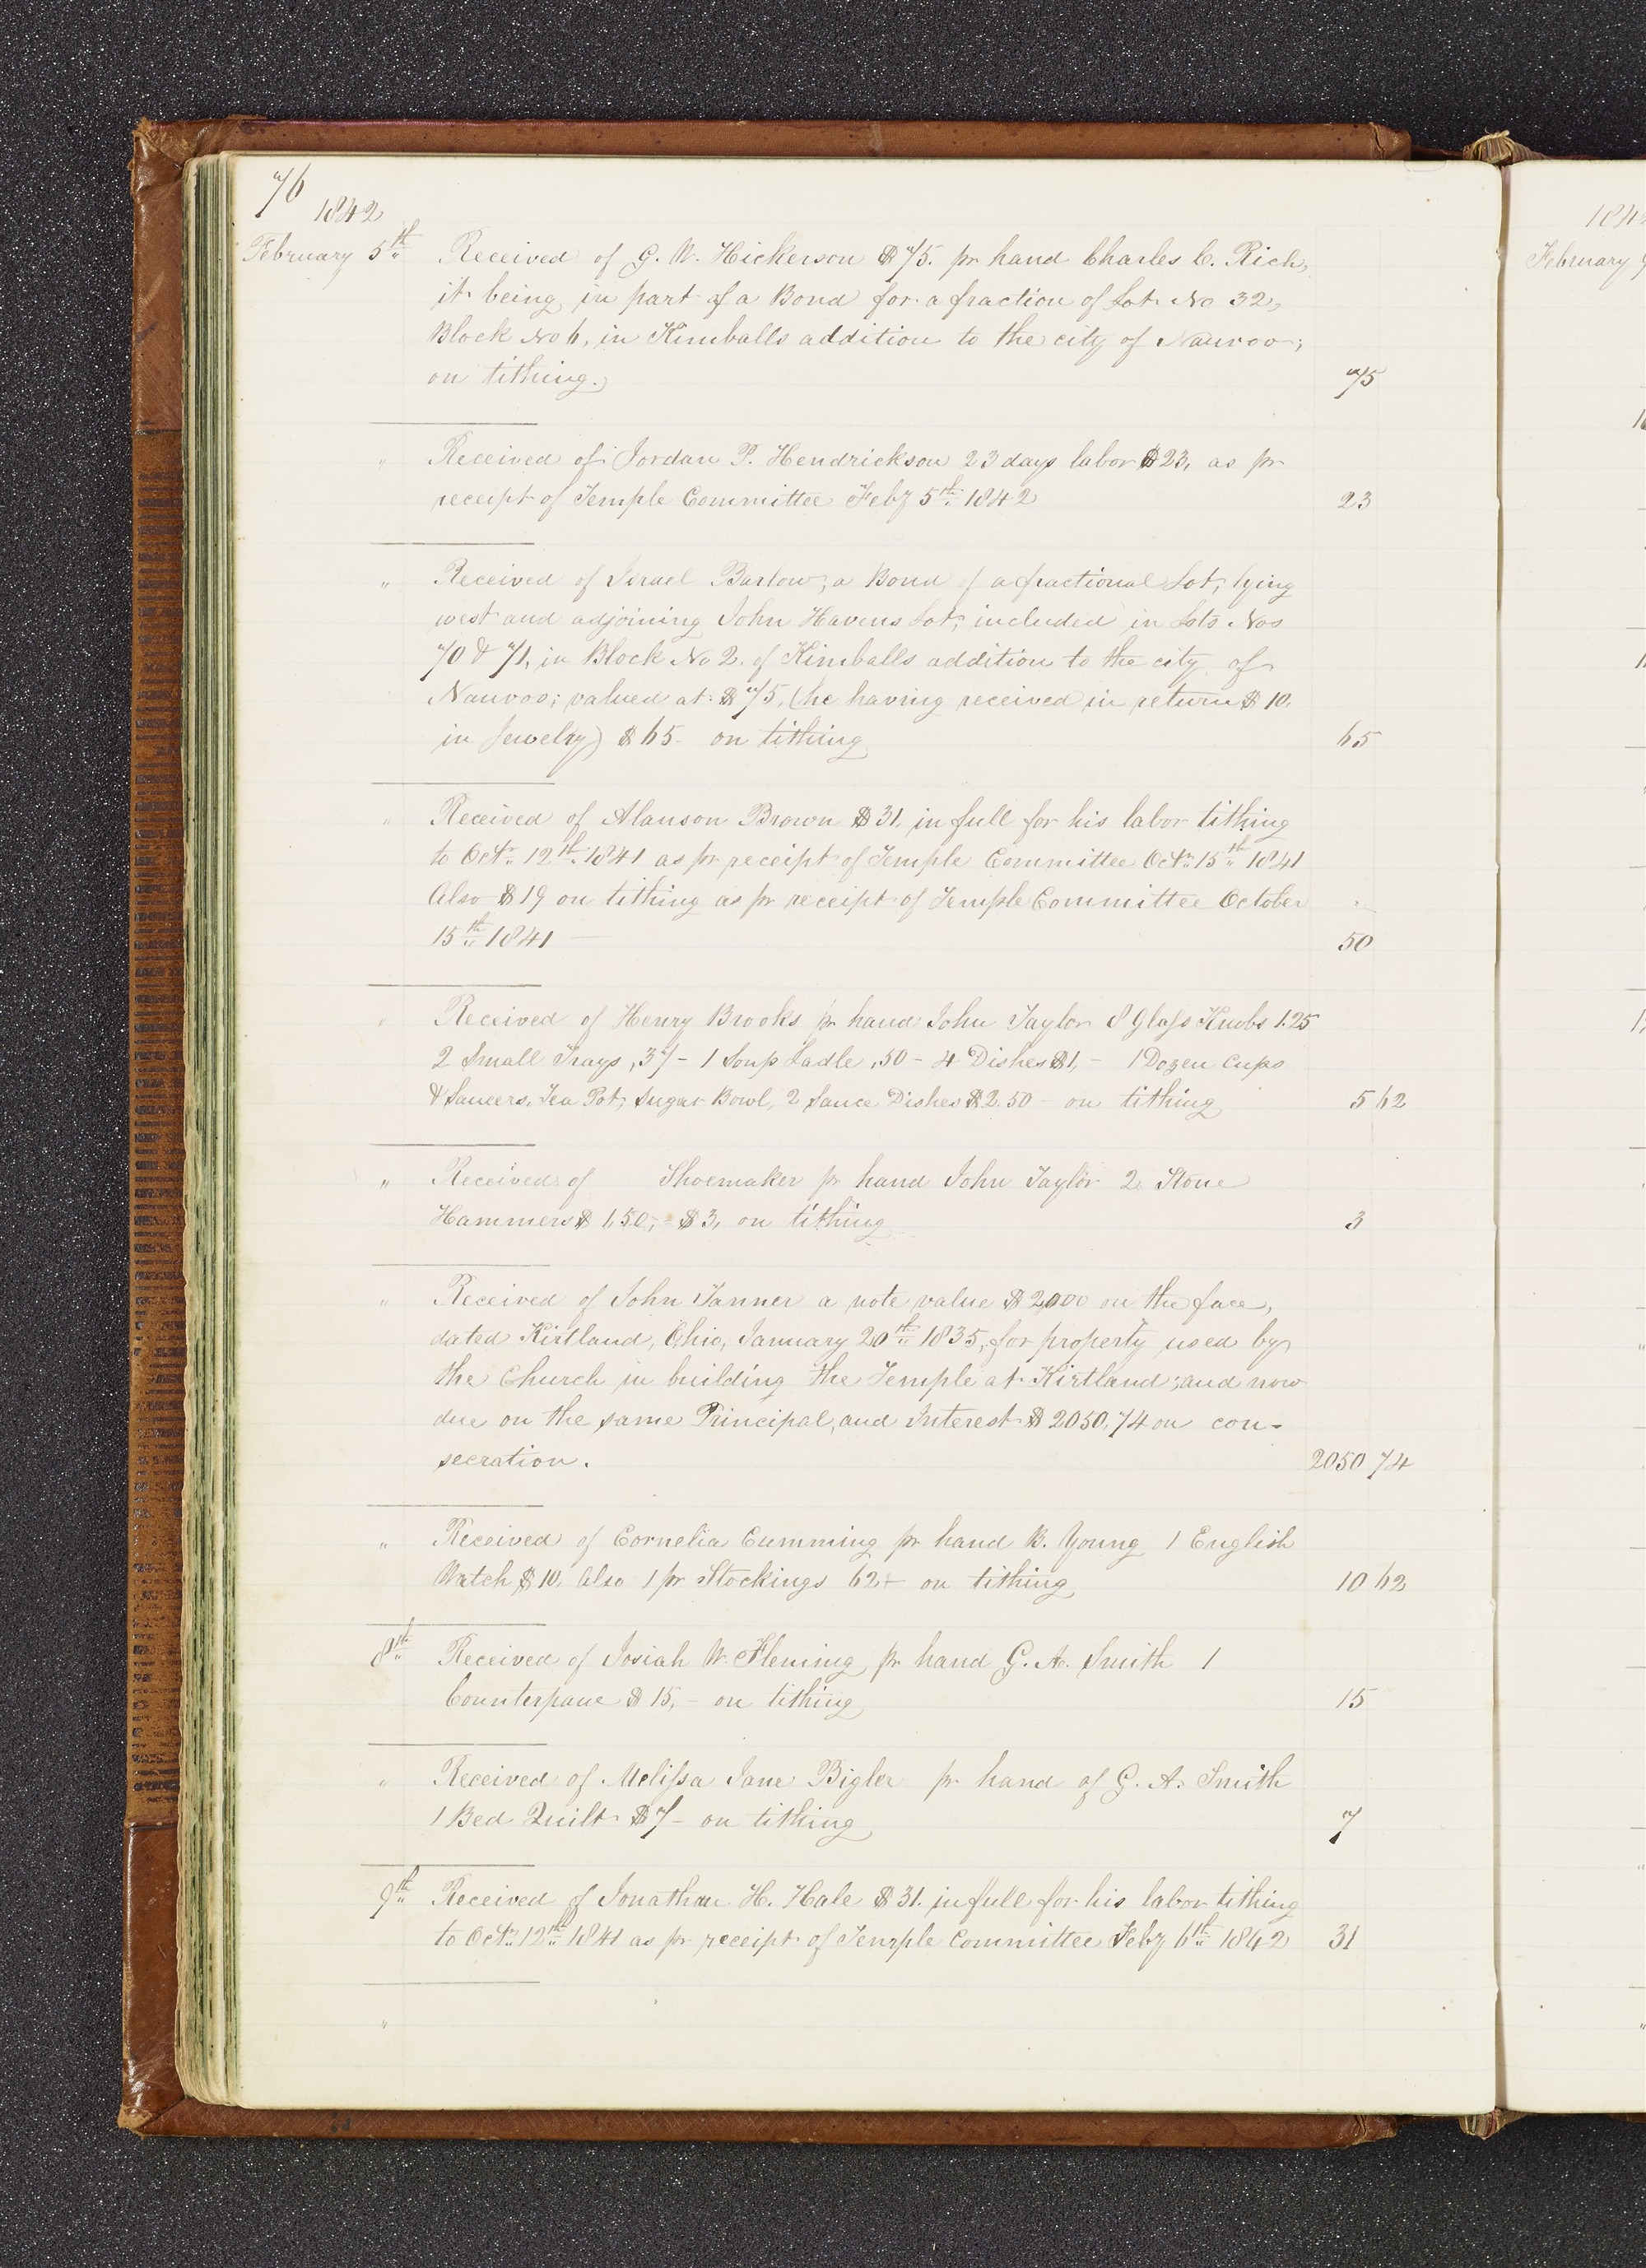 76
1842
February 5th Received of G. W. Hickerson $75. pr hand Charles C. Rich,
it being in part of a Bond for a fraction of Lot No 32,
Block No 6, in Kimballs addition to the city of Nauvoo;
on tithing. 75
" Received of Jordan P. Hendrickson 23 days labor $23, as pr
receipt of Temple Committee Feby 5th 1842 23
" Received of Israel Barlow, a Bond of a fractional Lot, lying
west and adjoining John Havens Lot, included in Lots Nos
70 & 71, in Block No 2. of Kimballs addition to the city of
Nauvoo; valued at $75, (he having received in return $10.
in Jewelry) $65- on tithing 65
" Received of Alanson Brown $31. in full for his labor tithing
to Octr 12th 1841 as pr receipt of Temple Committee Octr 15th 1841
Also $19 on tithing as pr receipt of Temple Committee October
15th 1841 — 50
" Received of Henry Brooks pr hand John Taylor 8 Glass Knobs 1.25
2 Small Trays ,37- 1 Soup Ladle ,50- 4 Dishes $1,- 1 Dozen Cups
& Saucers, Tea Pot, Sugar Bowl, 2 Sauce Dishes $2.50- on tithing 5 62
" Received of Shoemaker pr hand John Taylor 2 Stone
Hammers $1,50,- $3, on tithing 3
" Received of John Tanner a note value $2000 on the face,
dated Kirtland, Ohio, January 20th 1835, for property used by
the Church in building the Temple at Kirtland; and now
due on the same Principal, and Interest $2050.74 on con-
secration. 2050 74
" Received of Cornelia Cumming pr hand B. Young 1 English
Watch $10, Also 1 pr Stockings 62- on tithing 10 62
8th Received of Josiah W. Fleming pr hand G. A. Smith 1
Counterpane $15,- on tithing 15
" Received of Melissa Jane Bigler pr hand of G. A. Smith
1 Bed Quilt $7- on tithing 7
9th Received of Jonathan H. Hale $31. in full for his labor tithing
to Octr 12th 1841 as pr receipt of Temple Committee Feby 6th 1842 31
"
February